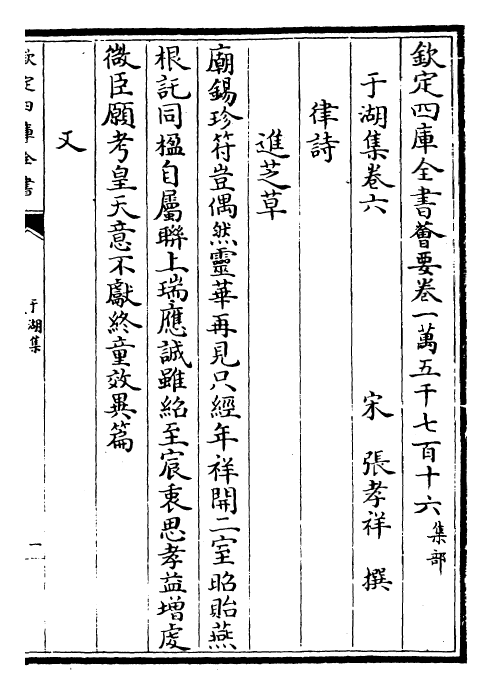 欽定四庫全書薈要卷一萬五千七百十六集部
于湖集卷六 宋 張孝祥 撰
律詩
進芝草
廟錫珍符豈偶然靈華再見只經年祥開二室昭貽燕
根託同楹自屬聯上瑞應誠雖紹至宸衷思孝益增虔
微臣願考皇天意不獻終童效異篇
又
欽定四庫全書
于湖集
一